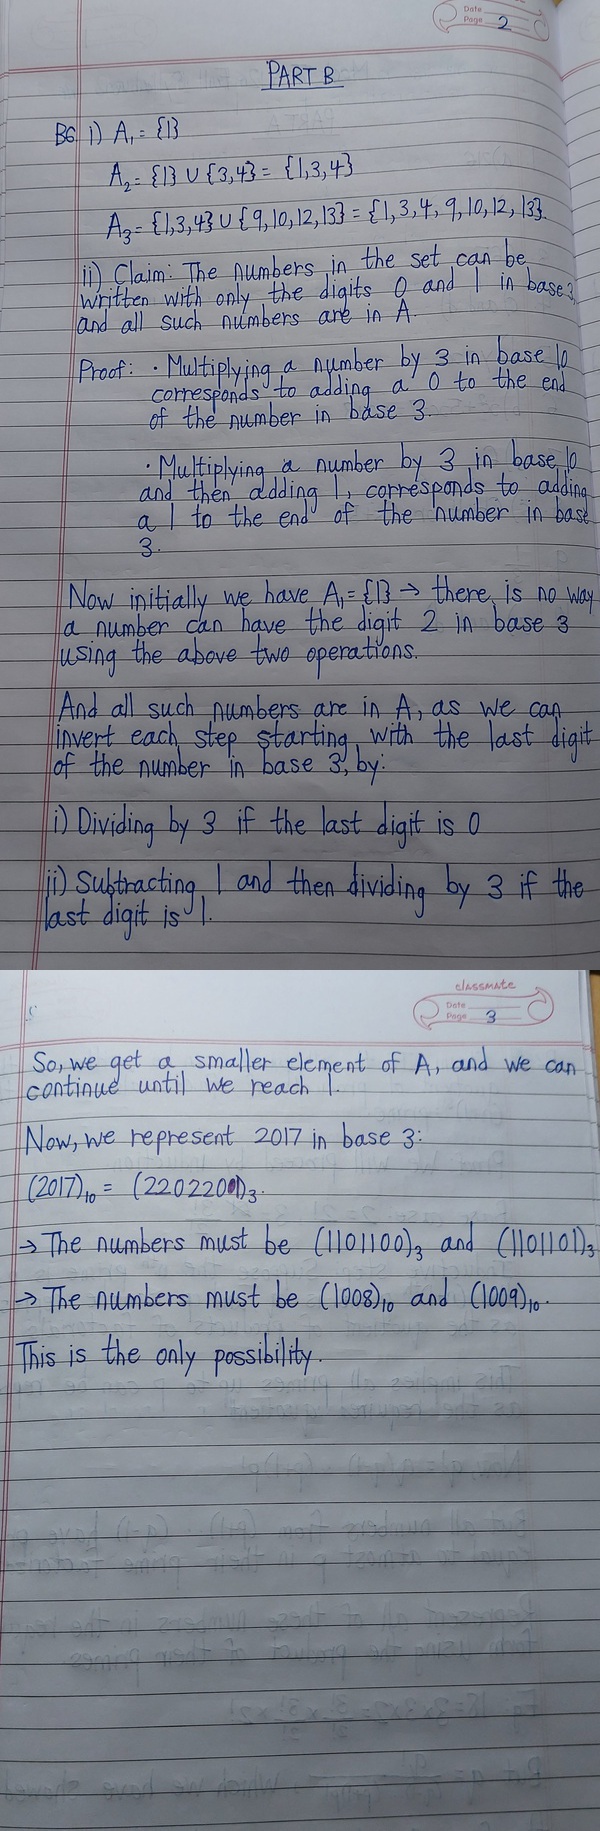 Date
Page 2
PART B
B6 i) A₁ = {1}
A₂ = {1} ∪ {3,4} = {1,3,4}
A₃ = {1,3,4} ∪ {9,10,12,13} = {1,3,4,9,10,12,13}.
ii) Claim: The numbers in the set can be
written with only the digits 0 and 1 in base 3,
and all such numbers are in A.
Proof: · Multiplying a number by 3 in base 10
corresponds to adding a 0 to the end
of the number in base 3.
· Multiplying a number by 3 in base 10
and then adding 1, corresponds to adding
a 1 to the end of the number in base
3.
Now initially we have A₁ = {1} → there is no way
a number can have the digit 2 in base 3
using the above two operations.
And all such numbers are in A, as we can
invert each step starting with the last digit
of the number in base 3, by:
i) Dividing by 3 if the last digit is 0
ii) Subtracting 1 and then dividing by 3 if the
last digit is 1.
classmate
Date
Page 3
So, we get a smaller element of A, and we can
continue until we reach 1.
Now, we represent 2017 in base 3:
(2017)₁₀ = (2202201)₃.
→ The numbers must be (1101100)₃ and (1101101)₃
→ The numbers must be (1008)₁₀ and (1009)₁₀.
This is the only possibility.